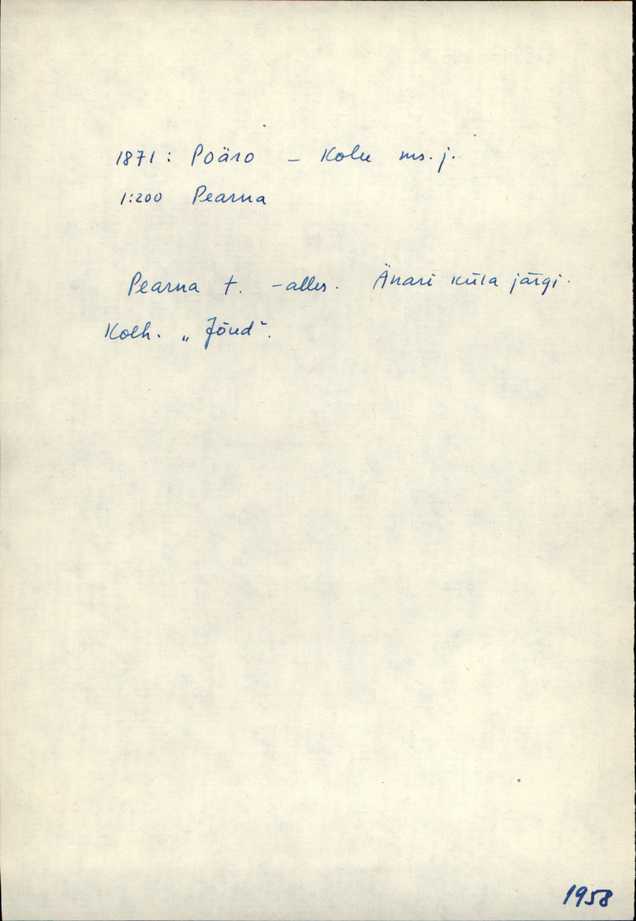 1871: Poäro - Kolu ms. j.
1:200 Pearna
Pearna t. - alles. Änari küla järgi.
Kolh. „Jõud".
1958